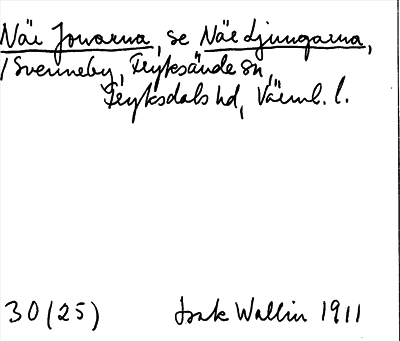 När Jonarna, se När Ljungarna,
/ Svenneby, Fryksände sn,
Fryksdals hd, Värml. l.
30 (25) Isak Wallin 1911